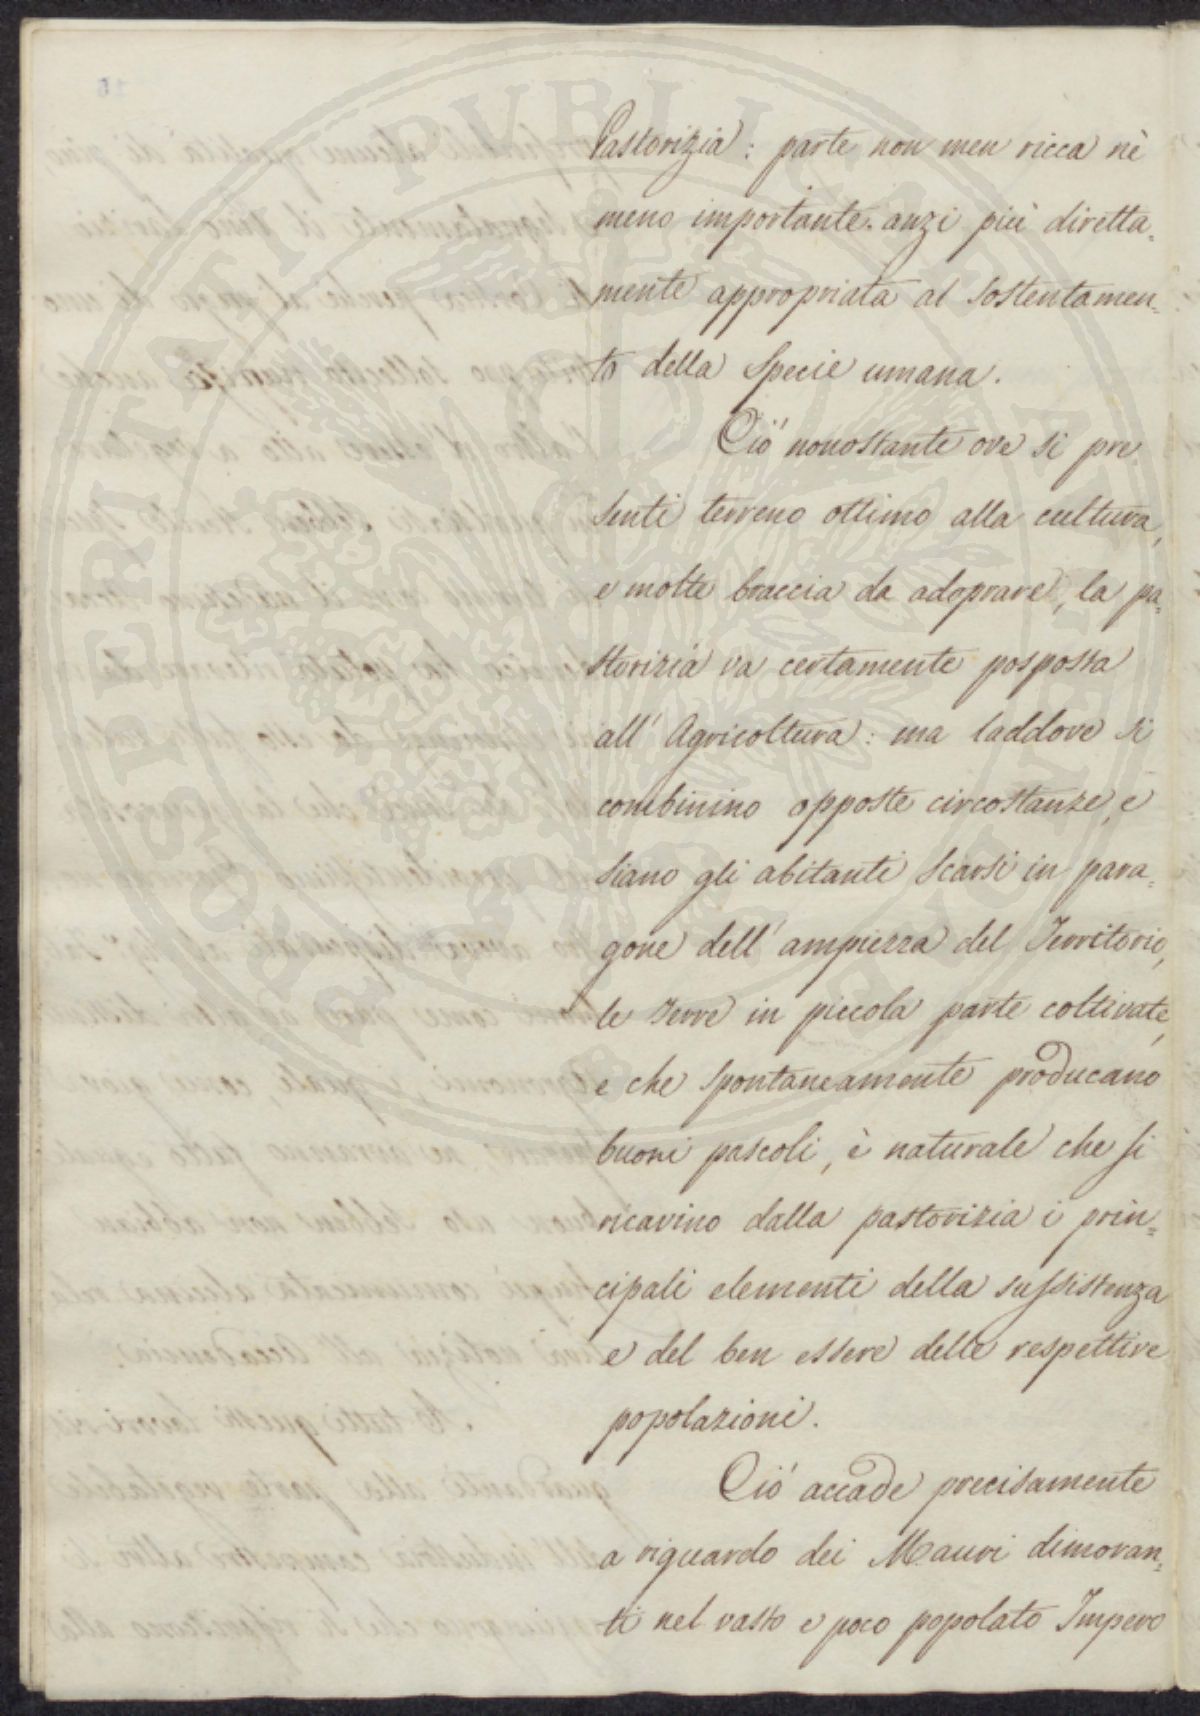 Pastorizia: parte non men ricca nè
meno importante. anzi più diretta=
mente appropriata al sostentamen=
to della specie umana.
Ciò nonostante ove si pre
senti terreno ottimo alla cultura,
e molte braccia da adoprare, la pa=
storizia va certamente posposta
all' Agricoltura: ma laddove si
combinino opposte circostanze, e
siano gli abitanti scarsi in para=
gone dell' ampiezza del Territorio,
le terre in piccola parte coltivate,
e che spontaneamente producano
buoni pascoli, è naturale che si
ricavino dalla pastorizia i prin=
cipali elementi della sussistenza
e del ben essere delle respettive
popolazioni.
Ciò accade precisamente
a riguardo dei Mauri dimoran=
ti nel vasto e poco popolato Impero